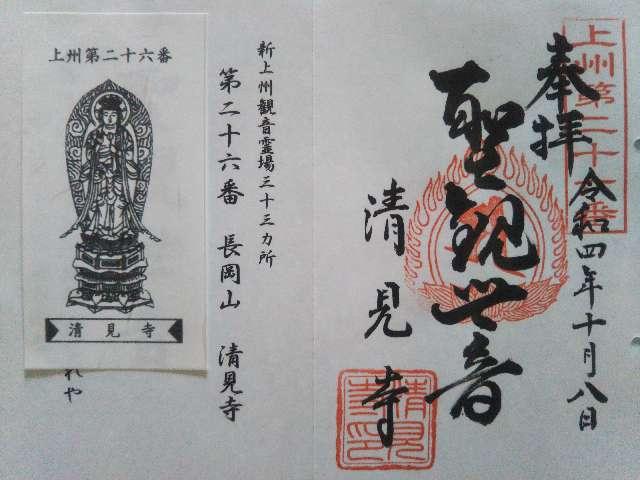 上州第二十六番
奉拝
令和四年十月八日
聖観世音
清見寺
清見寺印
新上州観音霊場三十三カ所
第二十六番 長岡山 清見寺
れや
上州第二十六番
清見寺